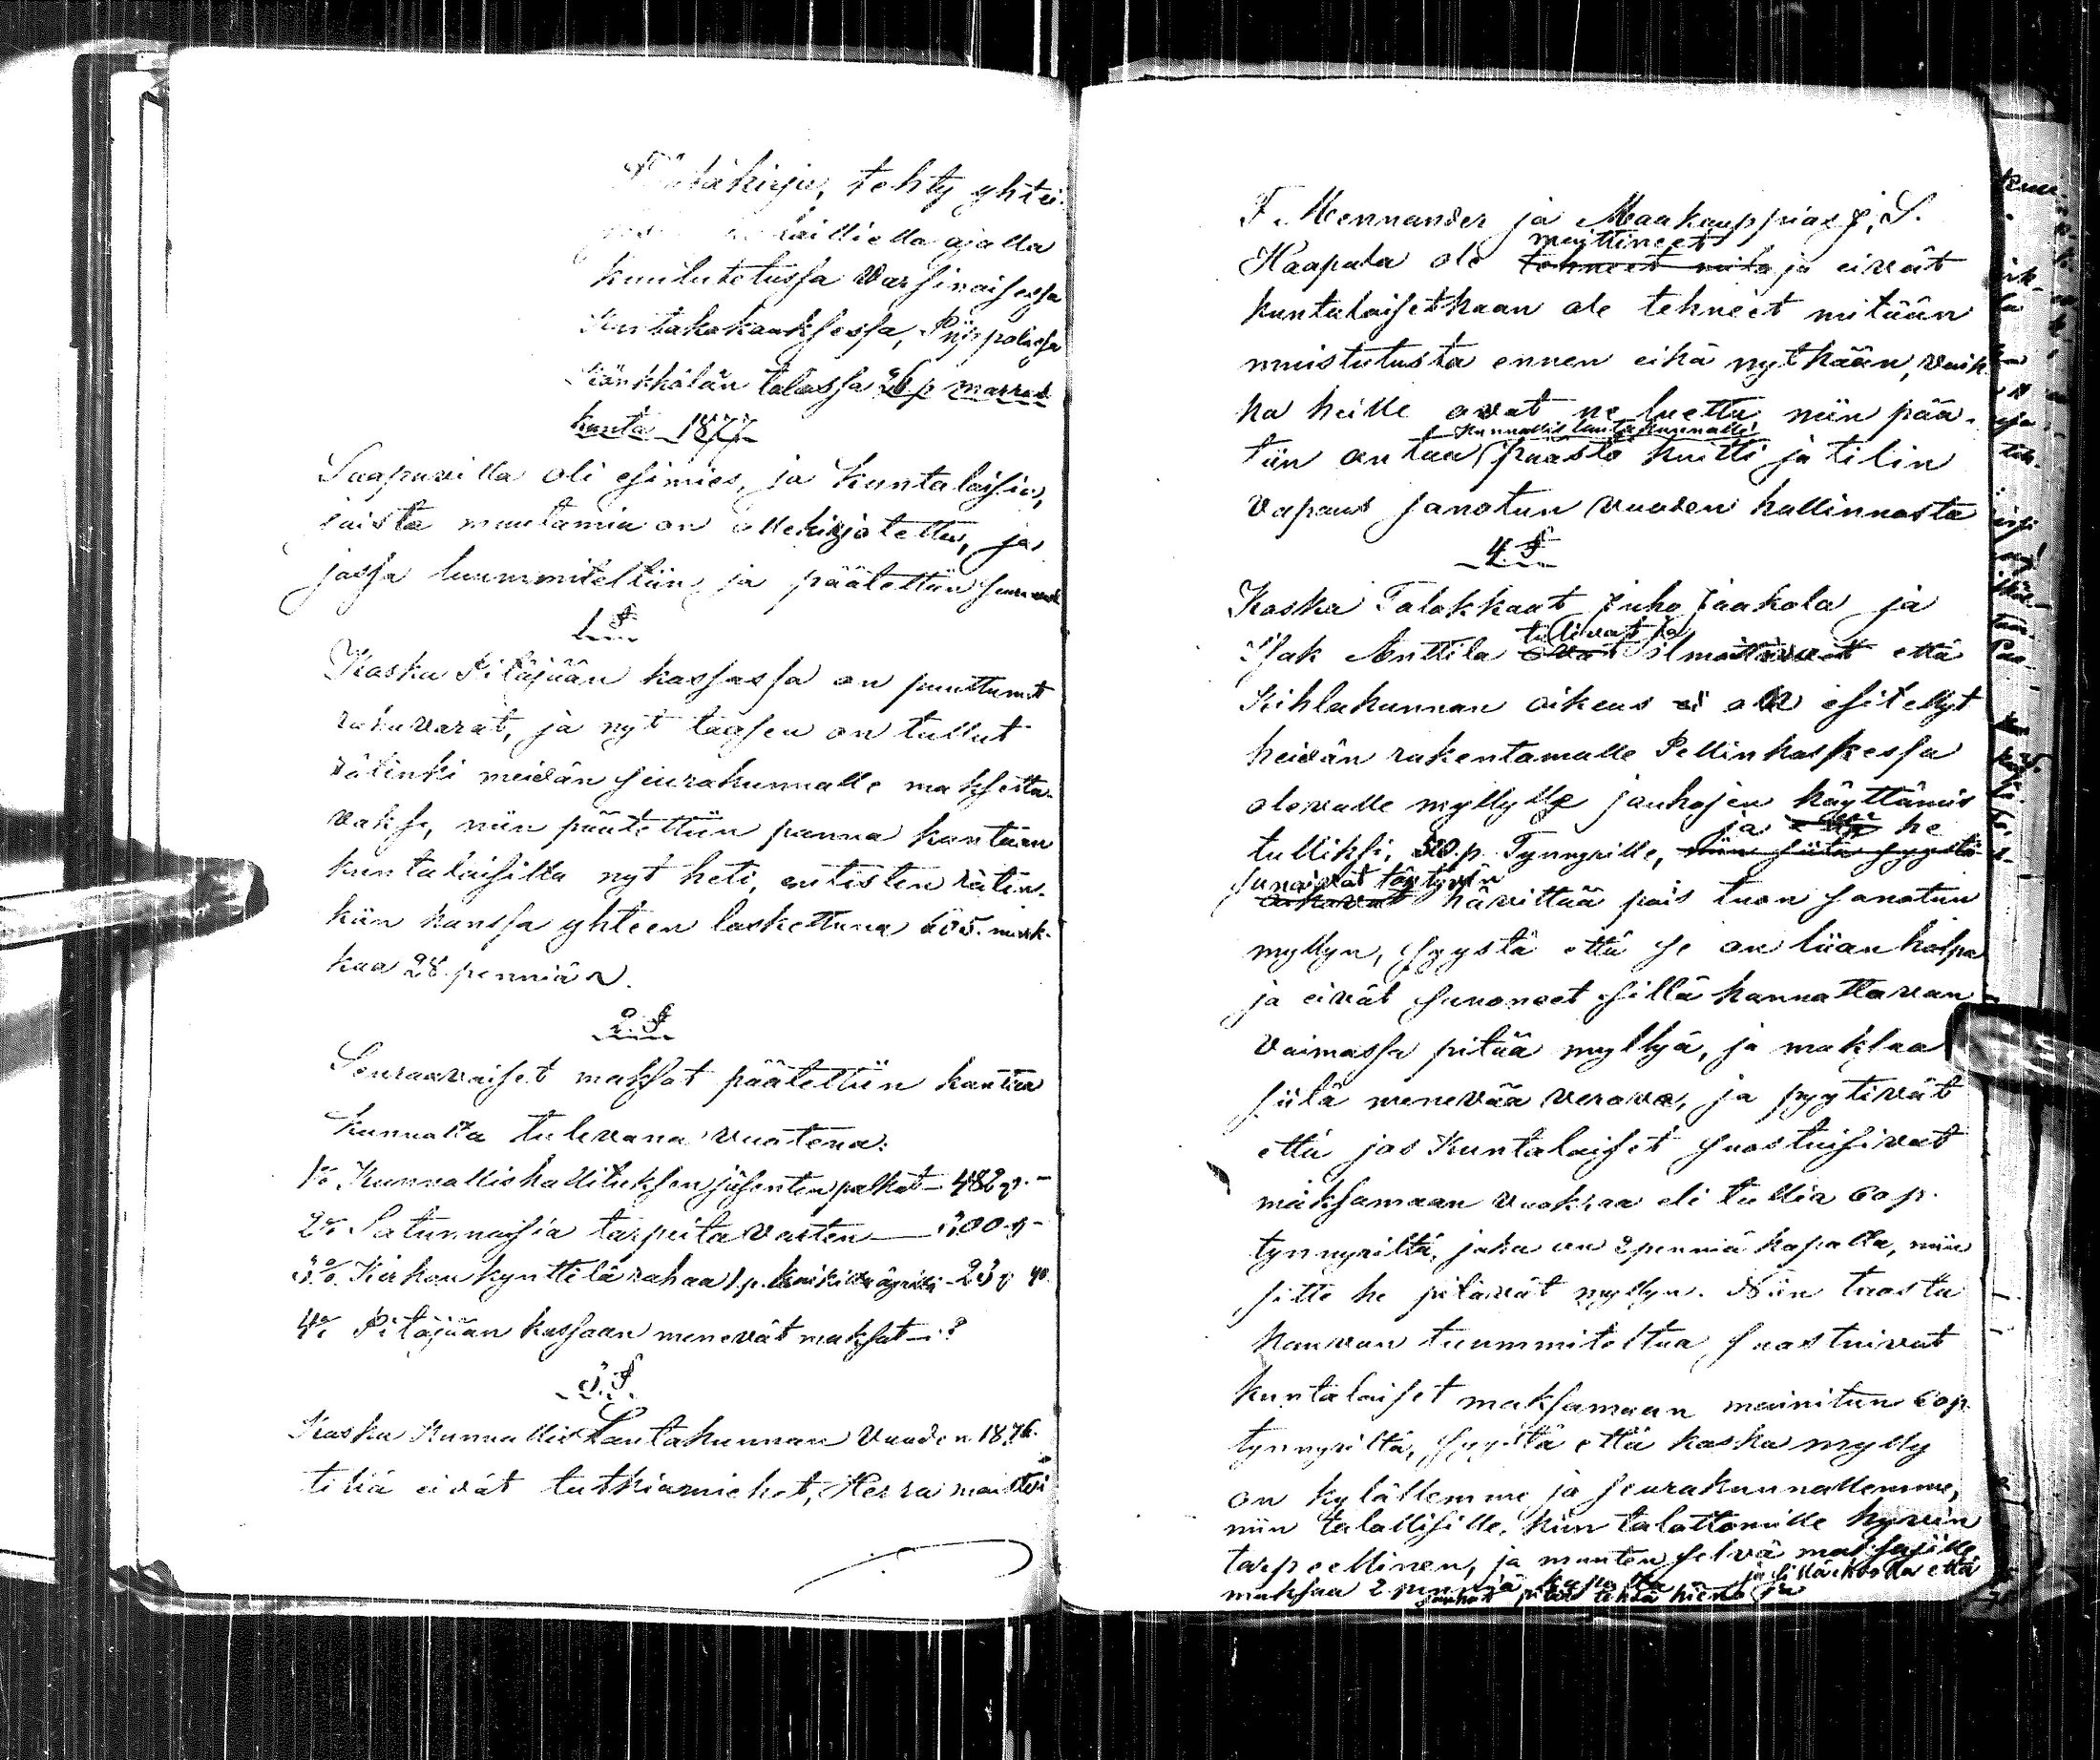 tehty yhtei-
laillisella ajalla
kuulutetussa Varsinaisessa
Kuntakokouksessa, Piippolassa
Könkkölän talossa 26 p marras
kuuta 1877
Saapuvilla oli esimies, ja kuntalaisia,
joista muutamia on allekirjotettu, ja
jossa tuummiteltiin ja päätettiin seuraavat
1. §
Koska Pitäjään kassassa on puuttunut
rahavarat, ja nyt taasen on tullut
rätinki meidän seurakunnalle maksetta-
vaksi, niin päätettiin panna kantaan
kuntalaisilta nyt heti, entisten rätin-
kiin kanssa yhteen laskettuna 605. mark-
kaa 28. penniä.
2. §
Seuraavaiset maksat päätettiin kantaa
kunnalta tulevana vuotena:
1o Kunnallishallituksen jäsenten palkat - 482 -
2o Satunnaisia tarpeita varten — 300 -
3o Kirkon kynttilä rahaa 1.p. kaikilta äyrillä - 23 40.
4o Pitäjään kassaan menevät maksat - ?
3. §
Koska Kunnallis Lautakunnan Vuoden 1876.
tiliä eivät tutkiamiehet, Herra maisteri
F. Mennander ja Maakauppias J. S.
muittineet
Haapala ole tehneet ja eivät
kuntalaisetkaan ole tehneet mitään
muistutusta ennen eikä nytkään, vaik-
ka heille ovat ne luettu niin pää-
Kunnallis lautakunnalle
tiin antaa päästö kuitti ja tilin
vapaus sanotun vuoden hallinnosta
4. §
Koska Talokkaat Juho Jaakola ja
tulivat ja
Isak Anttila ovat ilmoittivat että
Kihlakunnan oikeus ei ole esitellyt
heidän rakentamalle Pellinkoskessa
olevalle myllylle jauhojen käyttämis
ja he
tulliksi, 50.p. Tynnyrille, niin siitä syystä
sanoivat täytyvän
aikovat hävittää pois tuon sanotun
myllyn, syystä että se on liian halpa
ja eivät sanoneet sillä kannattavan
Voimassa pitää myllyä, ja maksaa
siitä menevää verova, ja pyytivät
että jos Kuntalaiset suostuisivat
maksamaan vuokraa eli tullia 60 p.
tynnyriltä, joka on 2 penniä kapalta, niin
sitte he pitävät myllyn. Niin tuosta
kauvan tuummiteltua, suostuivat
kuntalaiset maksamaan mainitun 60p.
tynnyriltä, syystä että koska mylly
on kylällemme ja seurakunnallemme,
niin talollisille, kuin talottomille hyvin
tarpeellinen, ja muuten selvä maksajille
maksaa 2 penniä kapalta ja sillä ehdolla että
jauhot pitää tehdä hieno ja